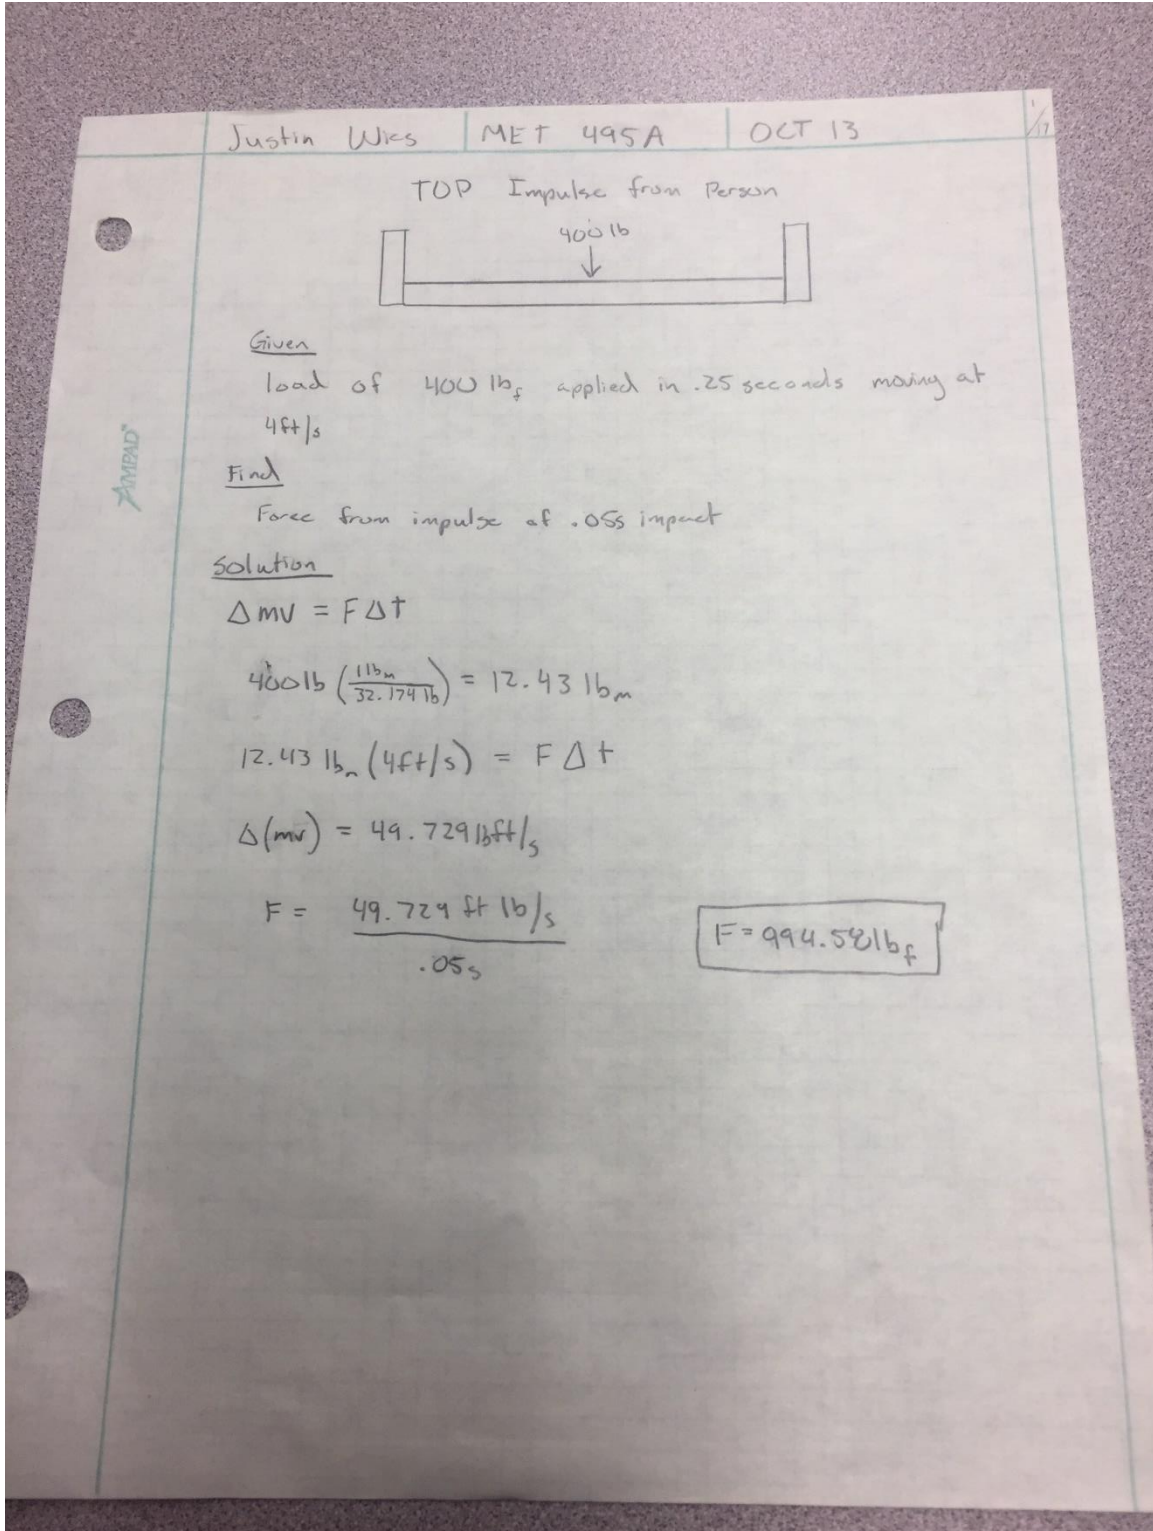 Justin Wies MET 495A OCT 13 1/17
TOP Impulse from Person
400 lb
Given
load of 400 lbf applied in .25 seconds moving at
4ft/s
AMPAD
Find
Force from impulse of .05s impact
Solution
Δmv = FΔt
400lb (1lbm / 32.174 lb) = 12.43 lbm
12.43 lbm (4ft/s) = FΔt
Δ(mv) = 49.729lbft/s
F = 49.729 ft lb/s
.05s
F = 994.58lbf